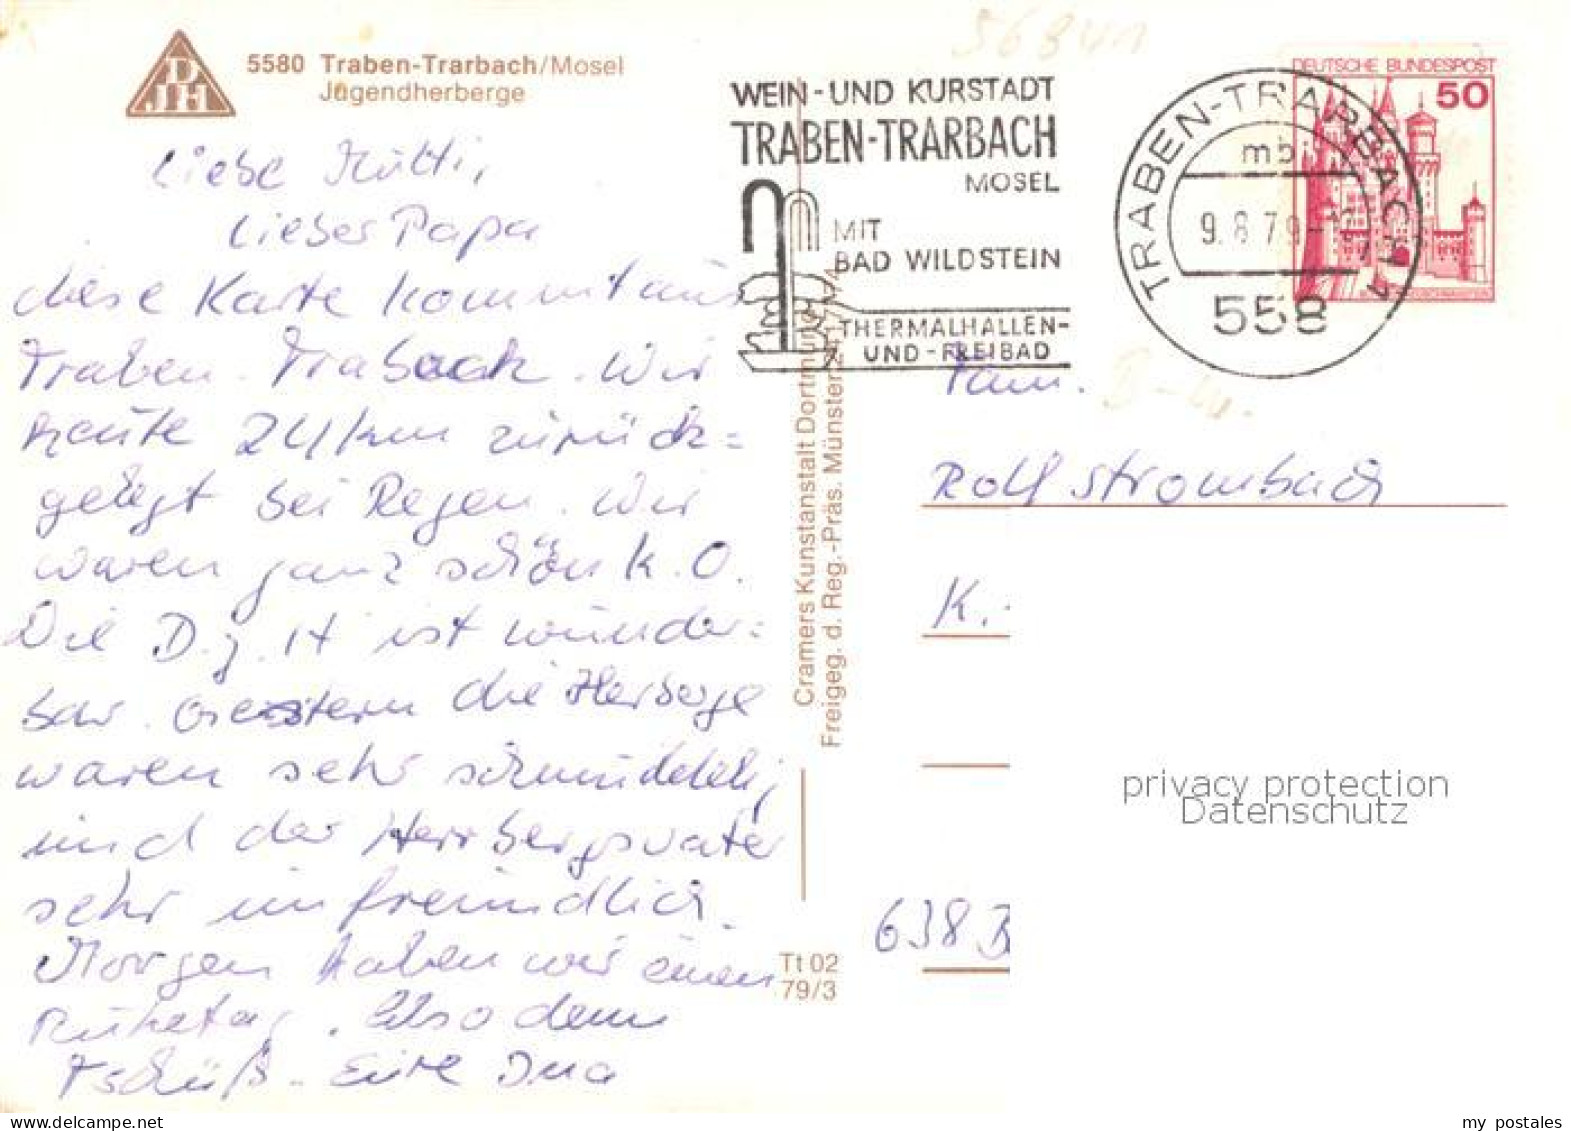 56841
5580 Traben-Trarbach/Mosel
Jugendherberge
DJH
WEIN-UND KURSTADT
TRABEN-TRARBACH
MOSEL
MIT
BAD WILDSTEIN
THERMALHALLEN-
UND-FREIBAD
TRABEN-TRARBACH 1
mb
9.8.79
558
DEUTSCHE BUNDESPOST
50
Liebe Mutti,
Lieber Papa
diese Karte kommt aus
Traben. Traback. Wir
heute 24 km zurück=
gelegt bei Regen. Wir
waren ganz schön K.O.
Die D.J.H ist wunder=
bar. Gestern die Herberge
waren sehr schmuddelig
und der Herrbergsvater
sehr unfreundlich.
Morgen haben wir einen
Ruhetag. Also dann
Tschüß. Eure Ina
Cramers Kunstanstalt Dortmund
Freigeg. d. Reg.-Präs. Münster
Tt 02
79/3
Fam.
Rolf Strombach
K.
638 B
privacy protection
Datenschutz
my postales